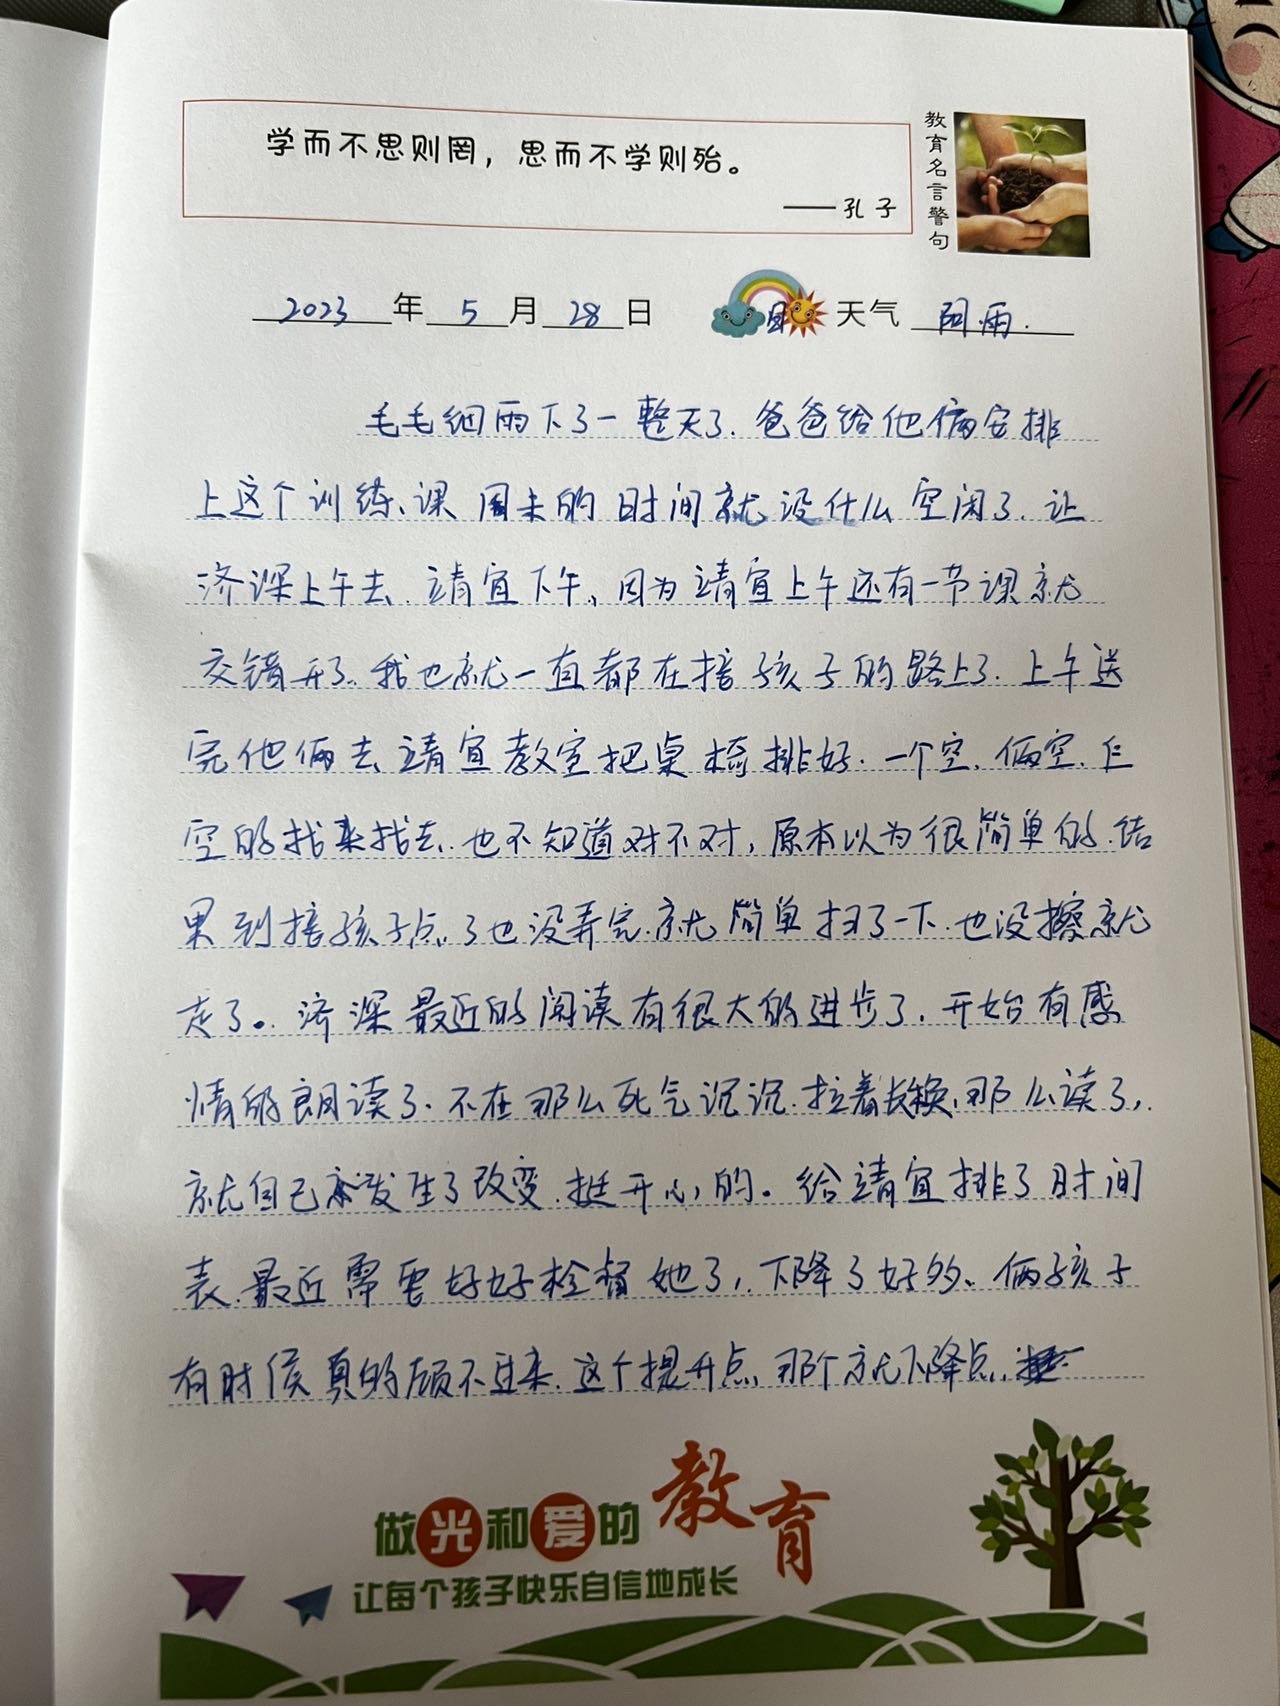 学而不思则罔，思而不学则殆。
——孔子
教育名言警句
2023年5月28日 日 天气 阴雨.
毛毛细雨下了一整天了.爸爸给他俩安排
上这个训练、课 周末的时间就没什么空闲了.让
济深上午去.靖宜下午、因为靖宜上午还有一节课就
交错开了.我也就一直都在接孩子的路上了.上午送
完他俩去靖宜教室把桌椅排好.一个空.俩空.仨
空的找来找去.也不知道对不对，原本以为很简单的.结
果到接孩子点了也没弄完.就简单扫了一下.也没擦就
走了。济深最近的阅读有很大的进步了.开始有感
情的朗读了.不在那么死气沉沉.拉着长换.那么读了，
就自己发生了改变.挺开心的。给靖宜排了时间
表.最近需要好好检督她了，下降了好多、俩孩子
有时候真的顾不过来.这个提升点、那个就下降点.
做光和爱的教育
让每个孩子快乐自信地成长